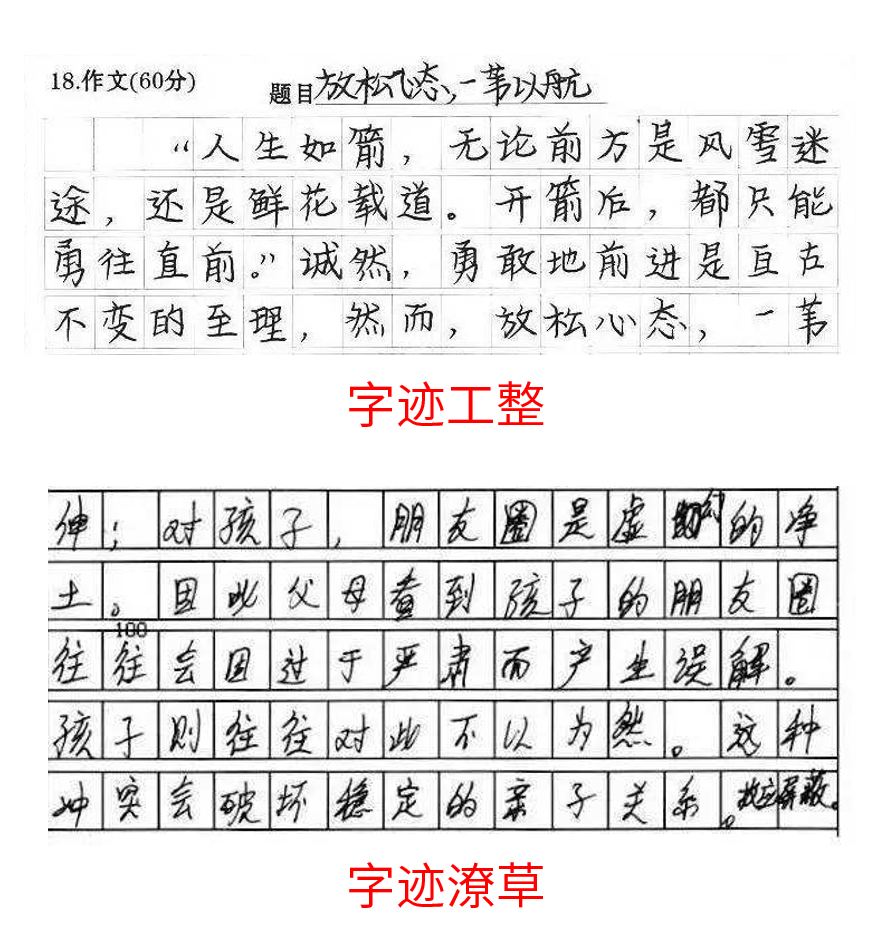 18.作文(60分)
题目放松心态,一苇以航
“人生如箭，无论前方是风雪迷
途，还是鲜花载道。开箭后，都只能
勇往直前。”诚然，勇敢地前进是亘古
不变的至理，然而，放松心态，一苇
字迹工整
伸；对孩子，朋友圈是虚幻的净
土。因此父母查到孩子的朋友圈
100
往往会因过于严肃而产生误解。
孩子则往往对此不以为然。这种
冲突会破坏稳定的亲子关系。
字迹潦草